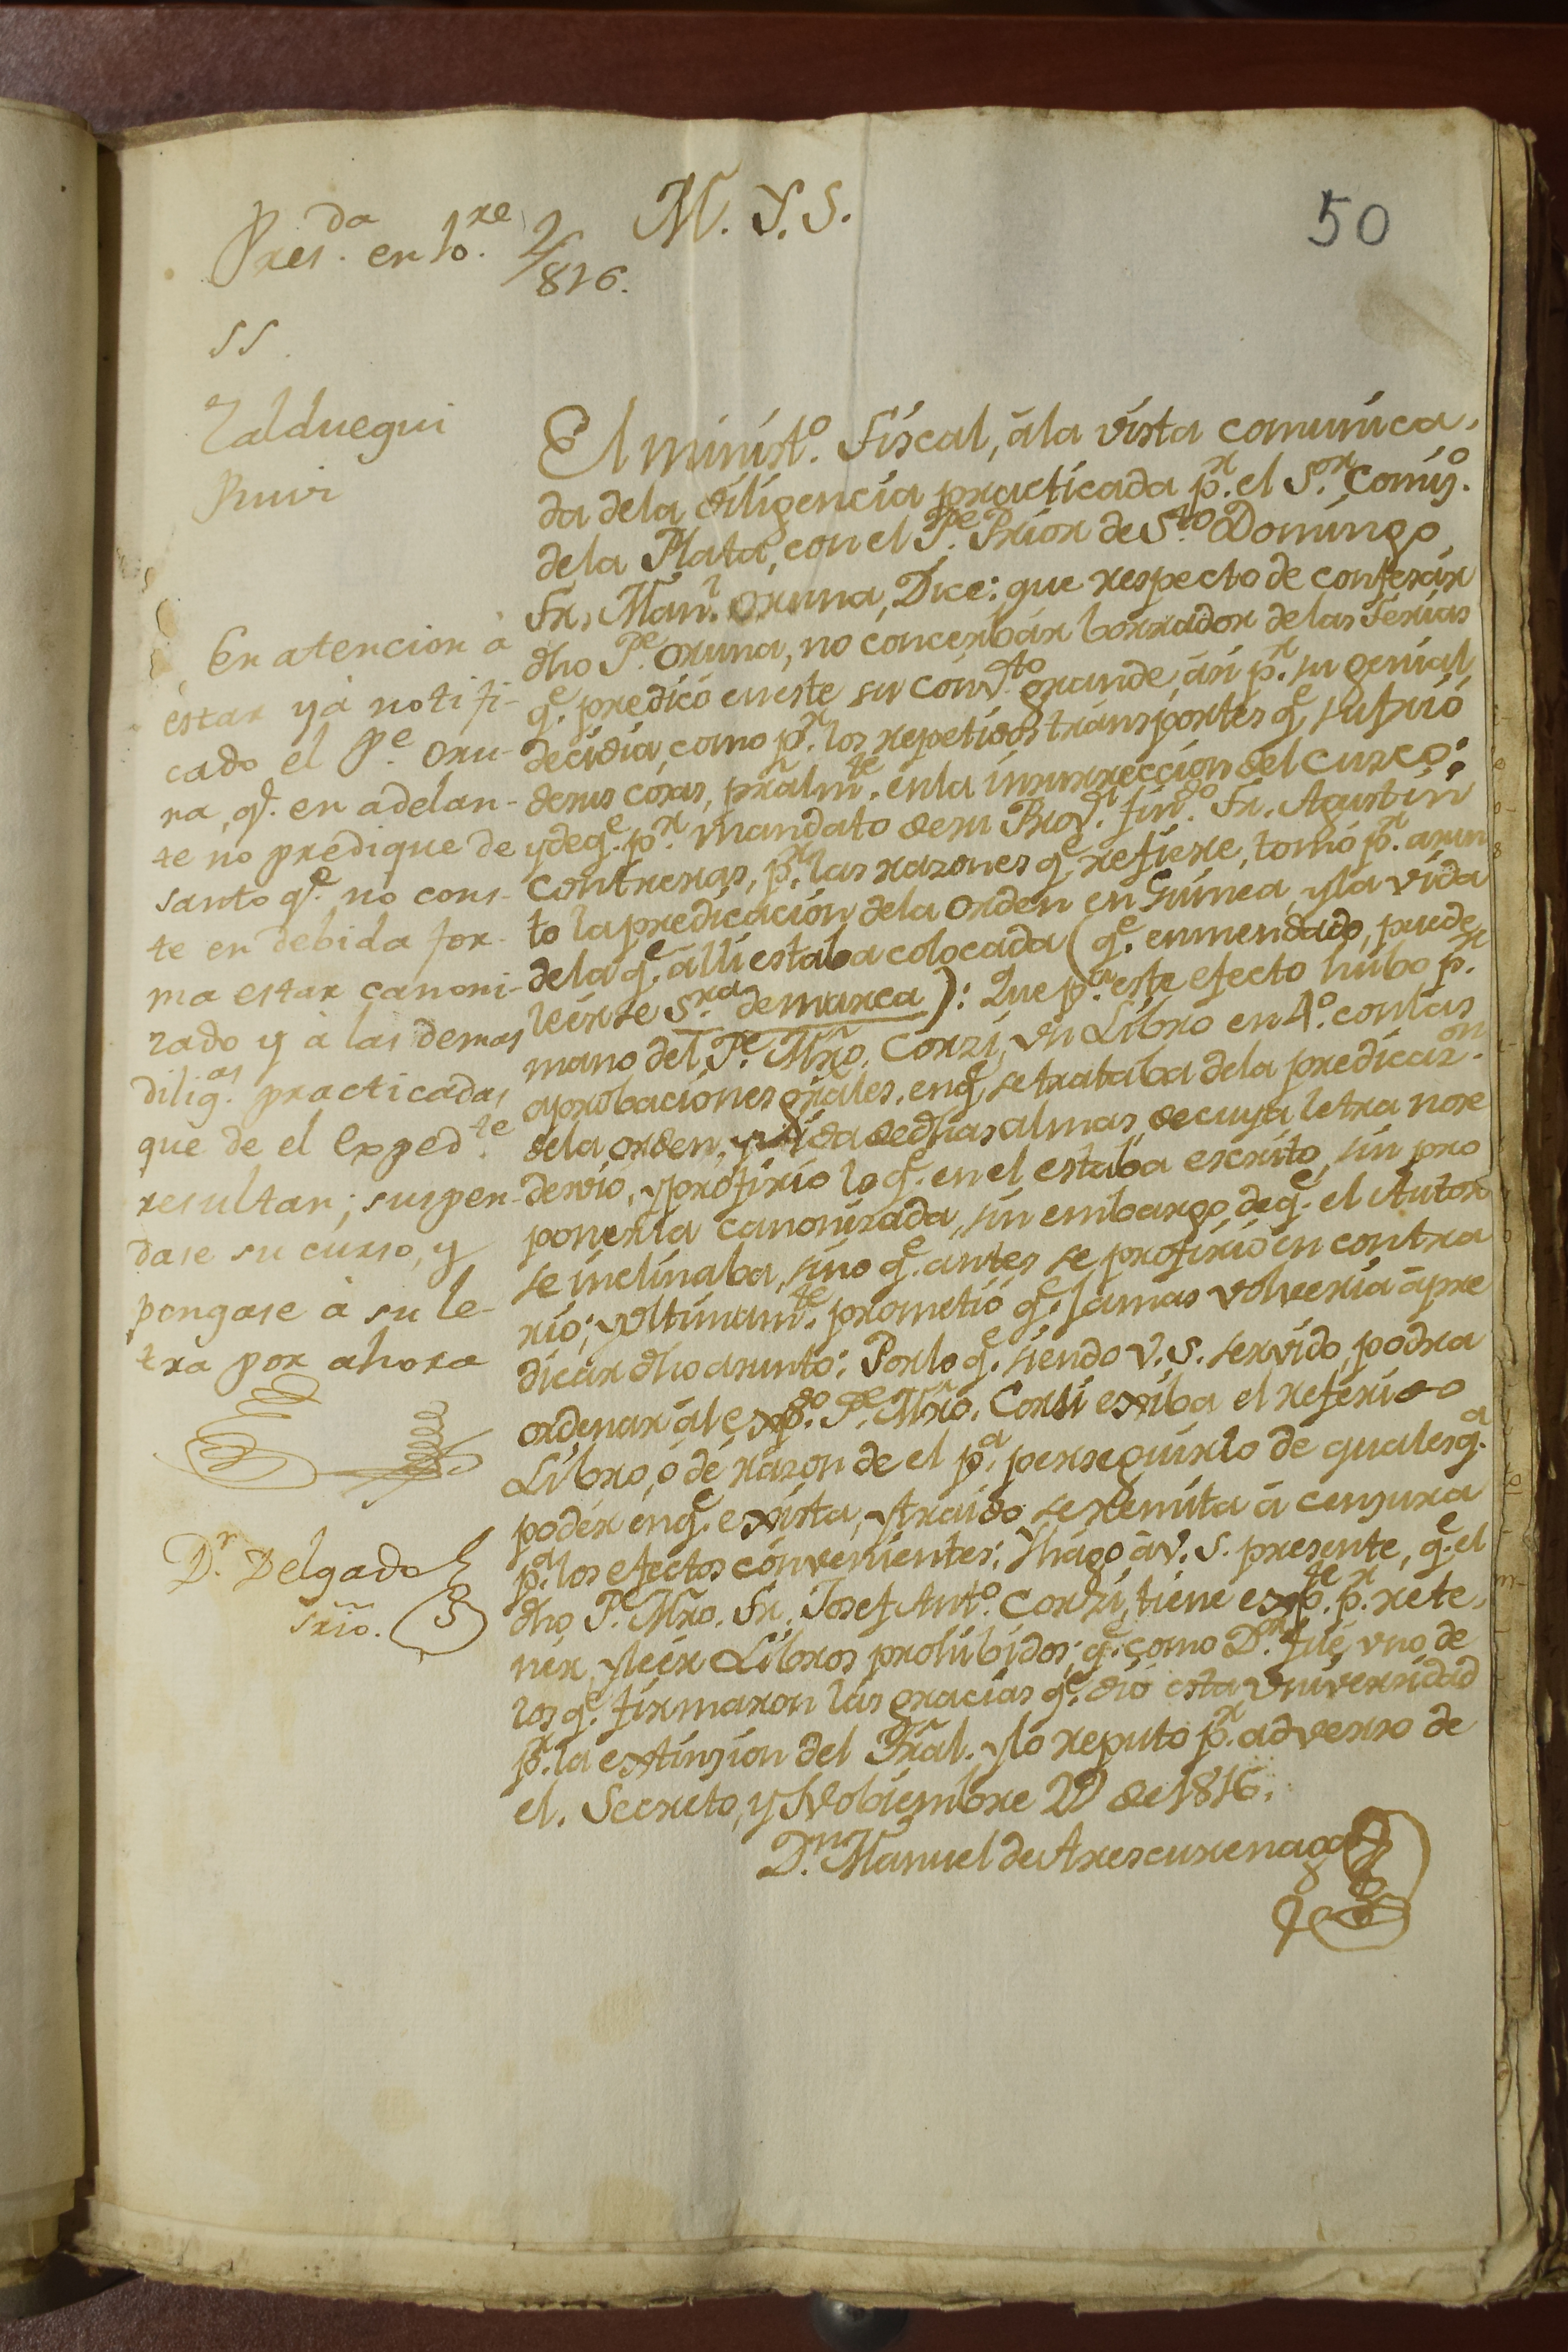 M. Y. S.
50
Pres.da en 10.re 2/816.
SS.
Zalduegui
Ruiz
En atencion à
estar yà notifi-
cado el Pe. Oru-
na, qe. en adelan-
te no predique de
santo qe. no cons-
te en debida for-
ma estar canoni-
zado y à las demas
dilig.as practicadas
que de el Exped.te
resultan; suspen-
dase su curso, y
pongase à su le-
tra por ahora
Dr. Delgado
Srio.
El minist.o Fiscal, à la vista comunica-
da dela diligencia practicada pr. el S.or Comis.o
dela Plata, con el Pe. Prior de Sto. Domingo
Fr. Man.l Oruna, Dice: que respecto de confesár
dho Pe. Oruna, no concerbár borrador delas Ferias
qe. predicó eneste su Conv.to grande, ási pr. su genial
decidia, como pr. los repetidos transportes qe. sufrió
desus cosas, prãlm.te enla insurrección del Cuzco:
ydeqe. pr. mandato desu Prov.l fin.do Fr. Agustin
Contreras, pr. las razones qe. refiere, tomó pr. asun
to la predicación dela Orden en Guinea, y la vida
dela qe. alli estaba colocada (qe. enmendado, puede
leérse S.ra demarca): Que p.a este efecto húbo pr.
mano del Pe. Mro. Corzi, un Libro en 4.o con las
aprobaciones griáles, enqe. se trataba dela predicaz.on
dela Orden, y vida dedhas almas, decuya letra nose
desvió, y profirió lo qe. en el estaba escrito, sin pro
ponerla canonizada, sin embargo deqe. el Autor
se inclinaba, sino qe. antes se profirió en contra
rio; y ultimam.te prometió qe. jamas volveria à pre
dicar dho asunto: Porlo qe. siendo V. S. servido, podra
ordenar ál exp.do Pe. Mro. Corsi exiba el referido
Libro, ó dé razon de el p.a perseguirlo de qualesq.a
podér enqe. exista, y traido se remita à censura
p.a los efectos convenientes: Y hago à V. S. presente, qe. el
dho Pe. Mro. Fr. Josef Ant.o Corzi, tiene exp.te pr. rete-
nér, y leér Libros prohibidos; qe. como Dr. fué uno de
los qe. firmaron las gracias qe. dió esta Universidad
pr. la extinsion del Trãl. y lo reputo pr. adverso de
el. Secreto, y Nobiembre 29 de 1816.
Dn. Manuel de Arescurenaga